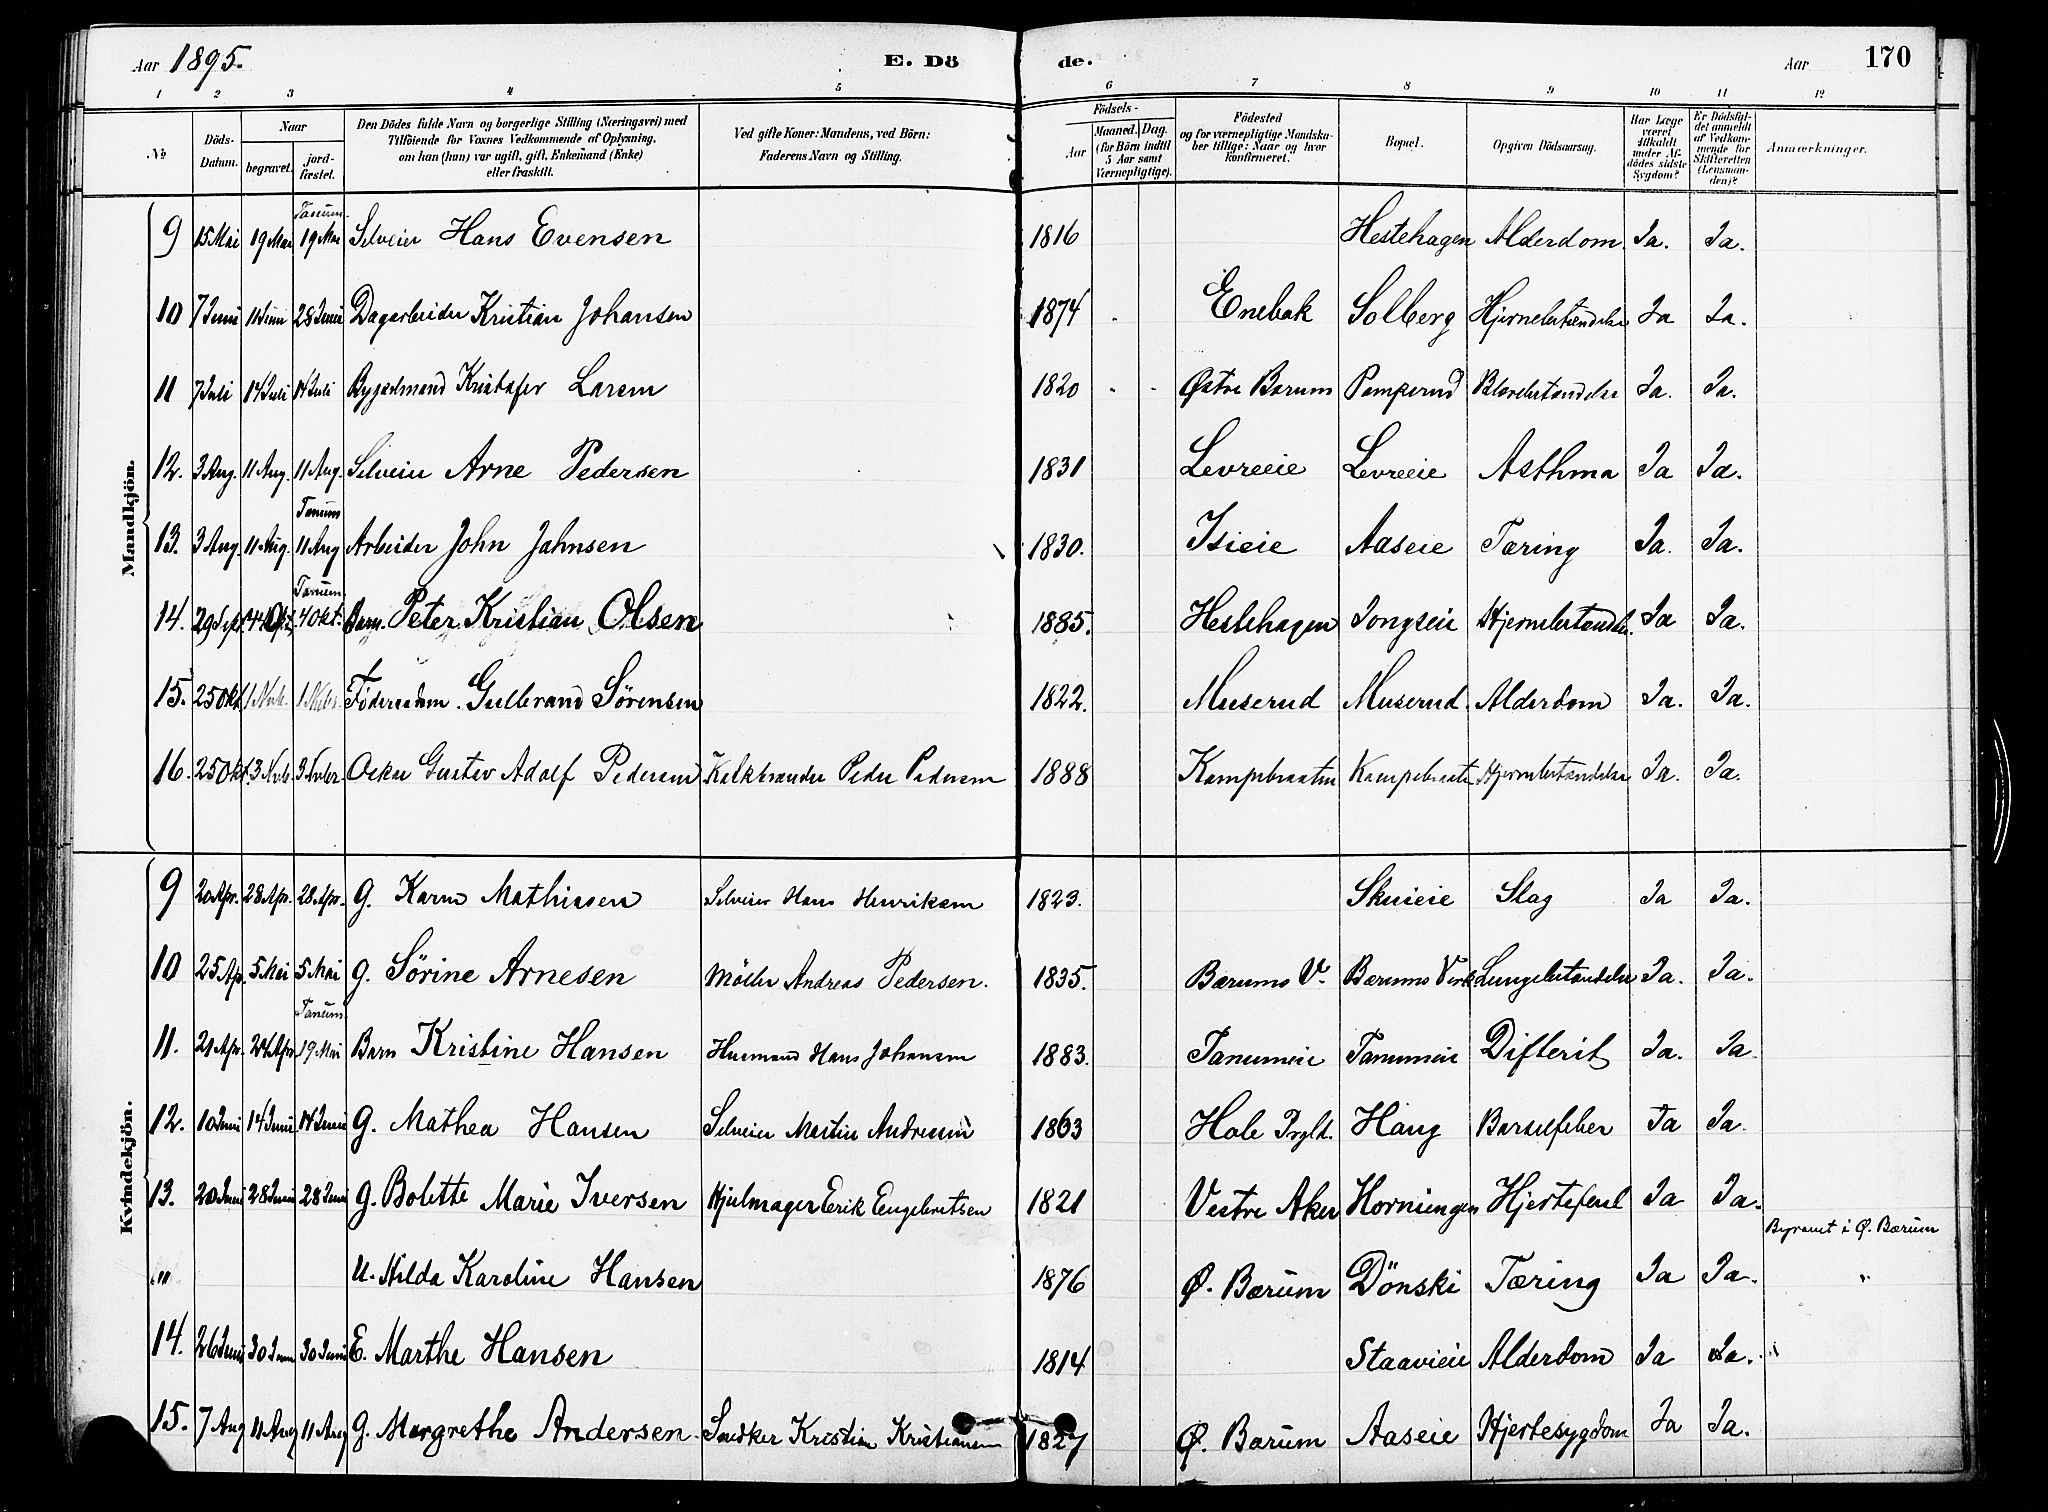 Aar 1895. E. Dö de. Aar 170
1 2 3 4 5 6 7 8 9 10 11 12
No Döds-Datum. Naar begravet. jord-fæstet. Den Dödes fulde Navn og borgerlige Stilling (Næringsvei) med Tilföiende for Voxnes Vedkommende af Oplysning, om han (hun) var ugift, gift, Enkemand (Enke) eller fraskilt. Ved gifte Koner: Mandens, ved Börn: Faderens Navn og Stilling. Födsels- Aar Maaned. Dag. (for Börn indtil 5 Aar samt Værnepligtige). Födested og for værnepligtige Mandska-ber tillige: Naar og hvor konfirmeret. Bopæl. Opgiven Dödsaarsag. Har Læge været tilkaldt under Af-dödes sidste Sygdom? Er Dödsfal-det anmeldt af Vedkom-mende for Skifteretten (Lensman-den)? Anmærkninger.
Mandkjön.
Tanum.
9 15 Mai 19 Mai 19 Mai Selveier Hans Evensen 1816 Hestehagen Alderdom. Ja. Ja.
10 7 Juni 28 Juni Dagarbeider Kristian Johansen 1874 Enebak Solberg Hjernebetændelse Ja Ja.
11 7 Juli 14 Juli 14 Juli Bygselmand Kristofer Larsen 1820 Østre Bærum Pamperud Blærebetændelse Ja. Ja.
12. 3 Aug. 11 Aug. 11 Aug. Selveier Arne Pedersen 1831 Levreeie Levreeie Asthma Ja Ja.
Tanum
13. 3 Aug 11 Aug. 11 Aug Arbeider John Jahnsen 1830. Isieie Aaseie Tæring Ja. Ja.
Tanum.
14. 29 Sept. 4 Okt. 4 Okt. Barn. Peter Kristian Olsen 1885. Hestehagen Jongseie Hjernebetændelse. Ja Ja.
15. 25 Okt 1 Nvb. 1 Nvbr. Föderaadsm. Gulbrand Sörensen 1822. Muserud Muserud. Alderdom Ja. Ja.
16. 25 Okt. 3 Nvb. 3 Nvbr. Oskar Gustav Adolf Pedersen Kalkbrænder Peder Pedersen 1888 Kampebraaten Kampebraaten Hjernebetændelse Ja. Ja.
Kvindekjön.
9 20 Apr. 28 Apr. 28 Apr. G. Karen Mathisen Selveier Hans Henriksen 1823. Skuieie Slag Ja Ja.
10 25 Ap. 5 Mai 5 Mai g. Sörine Arnesen Möller Andreas Pedersen. 1835. Bærums V. Bærums Verk Lungebetændelse Ja. Ja.
Tanum.
11. 21 Apr. 24 Apr 19 Mai Barn Kristine Hansen Husmand Hans Johansen 1883. Tanumeie Tanumeie Difterit Ja. Ja
12. 10 Juni 14 Juni 14 Juni G. Mathea Hansen Selveier Martin Andresen 1863 Hole Prgld. Haug Barselfeber Ja Ja.
13. 20 Juni 28 Juni 28 Juni g. Bolette Marie Iversen Hjulmager Erik Engebretsen 1821 Vestre Aker Horniengen Hjertefeil Ja Ja.
Begravet i Ø. Bærum
U. Hilda Karoline Hansen 1876 Ø. Bærum Dönski Tæring Ja Ja. "
14. 26 Juni 30 Juni 30 Juni E. Marthe Hansen 1814 Staavieie Alderdom Ja Ja.
15. 7 Aug 11 Aug 11 Aug G. Margrethe Andersen Snedker Kristian Kristiansen 1827 Ø. Bærum Aaseie Hjertesygdom Ja Ja.